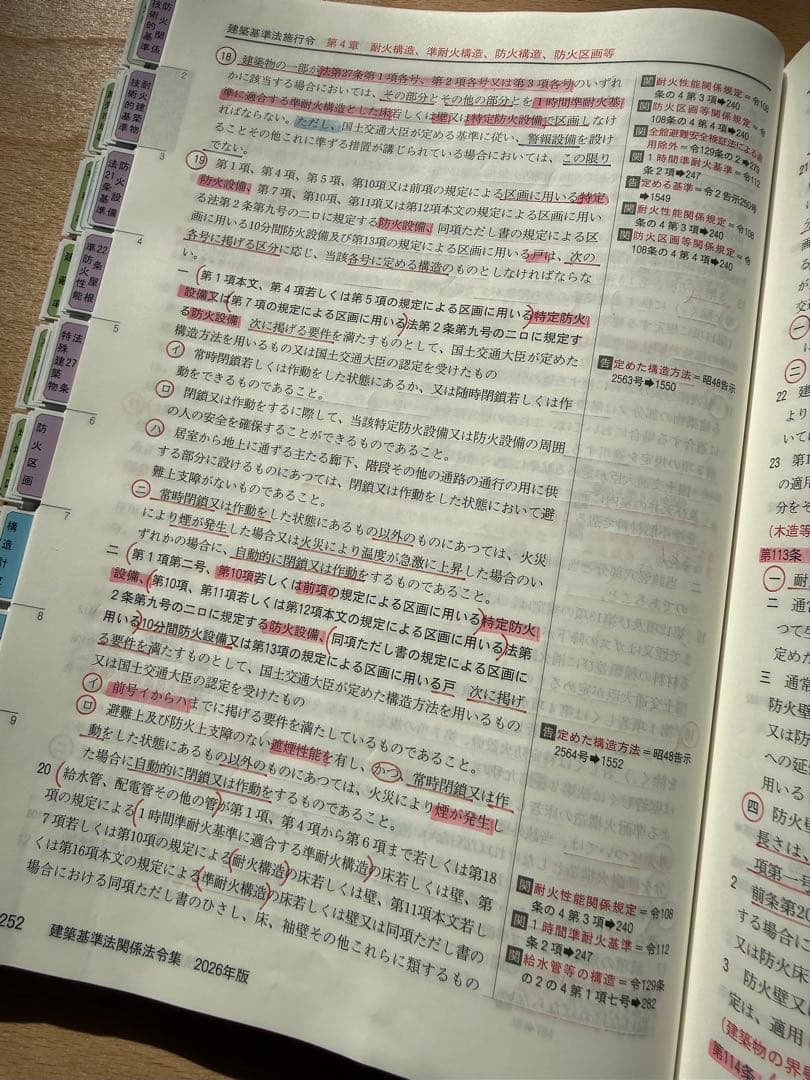 建築基準法施行令 第4章 耐火構造、準耐火構造、防火構造、防火区画等
18 建築物の一部が法第27条第1項各号、第2項各号又は第3項各号のいずれ
かに該当する場合においては、その部分とその他の部分とを1時間準耐火基
準に適合する準耐火構造とした床若しくは壁又は特定防火設備で区画しなけ
ればならない。ただし、国土交通大臣が定める基準に従い、警報設備を設け
ることその他これに準ずる措置が講じられている場合においては、この限り
でない。
19 第1項、第4項、第5項、第10項又は前項の規定による区画に用いる特定
防火設備、第7項、第10項、第11項又は第12項本文の規定による区画に用い
る法第2条第九号の二ロに規定する防火設備、同項ただし書の規定による区
画に用いる10分間防火設備及び第13項の規定による区画に用いる戸は、次の
各号に掲げる区分に応じ、当該各号に定める構造のものとしなければならな
い。
一 第1項本文、第4項若しくは第5項の規定による区画に用いる特定防火
設備又は第7項の規定による区画に用いる法第2条第九号の二ロに規定す
る防火設備 次に掲げる要件を満たすものとして、国土交通大臣が定めた
構造方法を用いるもの又は国土交通大臣の認定を受けたもの
イ 常時閉鎖若しくは作動をした状態にあるか、又は随時閉鎖若しくは作
動をできるものであること。
ロ 閉鎖又は作動をするに際して、当該特定防火設備又は防火設備の周囲
の人の安全を確保することができるものであること。
ハ 居室から地上に通ずる主たる廊下、階段その他の通路の通行の用に供
する部分に設けるものにあつては、閉鎖又は作動をした状態において避
難上支障がないものであること。
ニ 常時閉鎖又は作動をした状態にあるもの以外のものにあつては、火災
により煙が発生した場合又は火災により温度が急激に上昇した場合のい
ずれかの場合に、自動的に閉鎖又は作動をするものであること。
二 第1項第二号、第10項若しくは前項の規定による区画に用いる特定防火
設備、第10項、第11項若しくは第12項本文の規定による区画に用いる法第
2条第九号の二ロに規定する防火設備、同項ただし書の規定による区画に
用いる10分間防火設備又は第13項の規定による区画に用いる戸 次に掲げ
る要件を満たすものとして、国土交通大臣が定めた構造方法を用いるもの
又は国土交通大臣の認定を受けたもの
イ 前号イからハまでに掲げる要件を満たしているものであること。
ロ 避難上及び防火上支障のない遮煙性能を有し、かつ、常時閉鎖又は作
動をした状態にあるもの以外のものにあつては、火災により煙が発生し
た場合に自動的に閉鎖又は作動をするものであること。
20 給水管、配電管その他の管が第1項、第4項から第6項まで若しくは第18
項の規定による1時間準耐火基準に適合する準耐火構造の床若しくは壁、第
7項若しくは第10項の規定による耐火構造の床若しくは壁、第11項本文若し
くは第16項本文の規定による準耐火構造の床若しくは壁又は同項ただし書の
場合における同項ただし書のひさし、床、袖壁その他これらに類するもの
関 耐火性能関係規定=令108
条の4第3項➡240
関 防火区画等関係規定=令
108条の4第4項➡240
関 全館避難安全検証法による適
用除外=令129条の2➡279
関 1時間準耐火基準=令112
条2項➡247
告 定める基準=令2告示250号
➡1549
関 耐火性能関係規定=令108
条の4第3項➡240
関 防火区画等関係規定=令
108条の4第4項➡240
告 定めた構造方法=昭48告示
2563号➡1550
告 定めた構造方法=昭48告示
2564号➡1552
関 耐火性能関係規定=令108
条の4第3項➡240
関 1時間準耐火基準=令112
条2項➡247
関 給水管等の構造=令129条
の2の4第1項七号➡282
252 建築基準法関係法令集 2026年版
防火関係
技術的基準
耐火建築物
技術的基準
防火設備
法21条
22条屋根
準防火性能
法27条
特殊建築物
防火区画
構造計算
2
3
4
5
6
7
8
9
22
23 第1
の適用
分をそ
(木造等
第113条
一 耐
二 通
三 通常
防火壁
への延
用いる
四 防火壁
長さは、
項第一号
2 前条第20
する場合に
又は防火床
3 防火壁又
定は、適用
(建築物の界
第114条